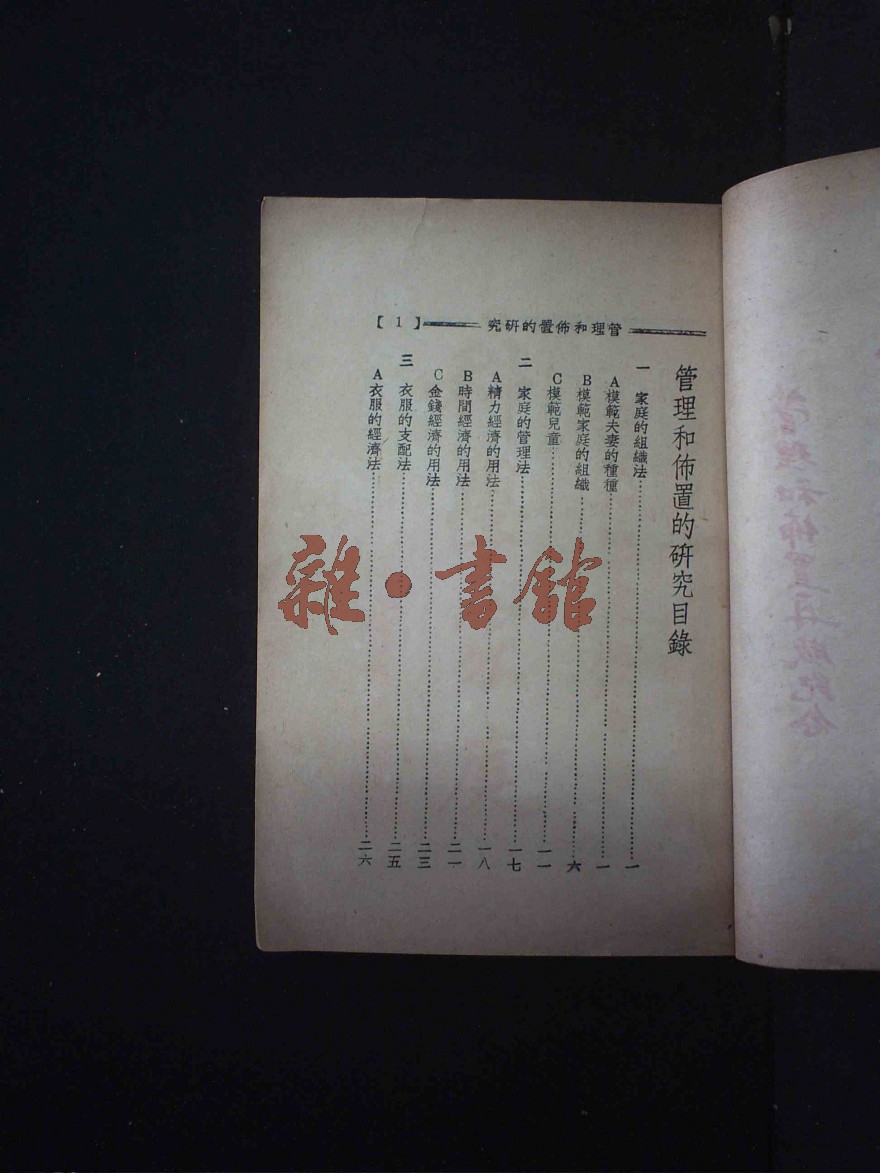 管理和佈置的研究
【1】
管理和佈置的研究目錄
一 家庭的組織法……一
A模範夫妻的種種……一
B模範家庭的組織……六
C模範兒童……一一
二 家庭的管理法……一七
A精力經濟的用法……一八
B時間經濟的用法……二一
C金錢經濟的用法……二三
三 衣服的支配法……二五
A衣服的經濟法……二六
雜·書館
管理和佈置再版紀念